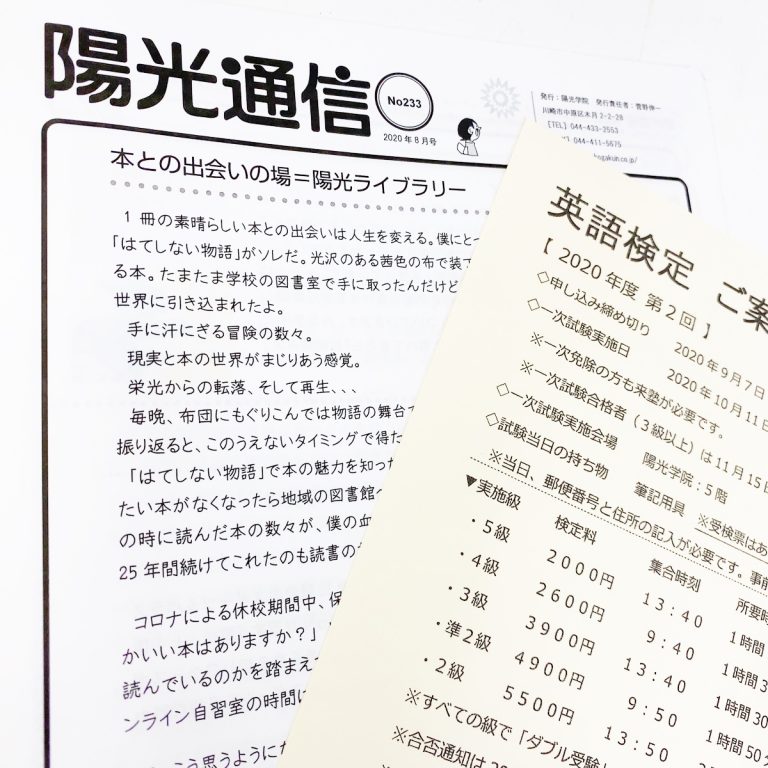 陽光通信
No233
2020年8月号
発行：陽光学院 発行責任者：菅野伸一
川崎市中原区木月2-2-28
［TEL］044-433-2553
044-411-5675
ogakuin.co.jp/
本との出会いの場＝陽光ライブラリー
1冊の素晴らしい本との出会いは人生を変える。僕にとっ
「はてしない物語」がソレだ。光沢のある茜色の布で装丁
る本。たまたま学校の図書室で手に取ったんだけど
世界に引き込まれたよ。
手に汗にぎる冒険の数々。
現実と本の世界がまじりあう感覚。
栄光からの転落、そして再生、、、
毎晩、布団にもぐりこんでは物語の舞台
振り返ると、このうえないタイミングで得た
「はてしない物語」で本の魅力を知った
たい本がなくなったら地域の図書館へ
の時に読んだ本の数々が、僕の血
25年間続けてこれたのも読書の
コロナによる休校期間中、保
かいい本はありますか？」
読んでいるのかを踏まえて
ンライン自習室の時間に
こう思うように
英語検定 ご案
【2020年度 第2回】
◇申し込み締め切り 2020年9月7日
◇一次試験実施日 2020年10月11日
※一次免除の方も来塾が必要です。
※一次試験合格者（3級以上）は11月15日
◇一次試験実施会場 陽光学院：5階
◇試験当日の持ち物 筆記用具 ※受検票はあ
※当日、郵便番号と住所の記入が必要です。事前
▼実施級 検定料 集合時刻 所要時
・5級 2000円 13:40 1時間
・4級 2600円 9:40 1時間3
・3級 3900円 13:40 1時間30
・準2級 4900円 9:50 1時間50分
・2級 5500円 13:50 2時間
※すべての級で「ダブル受験」
※合否通知は